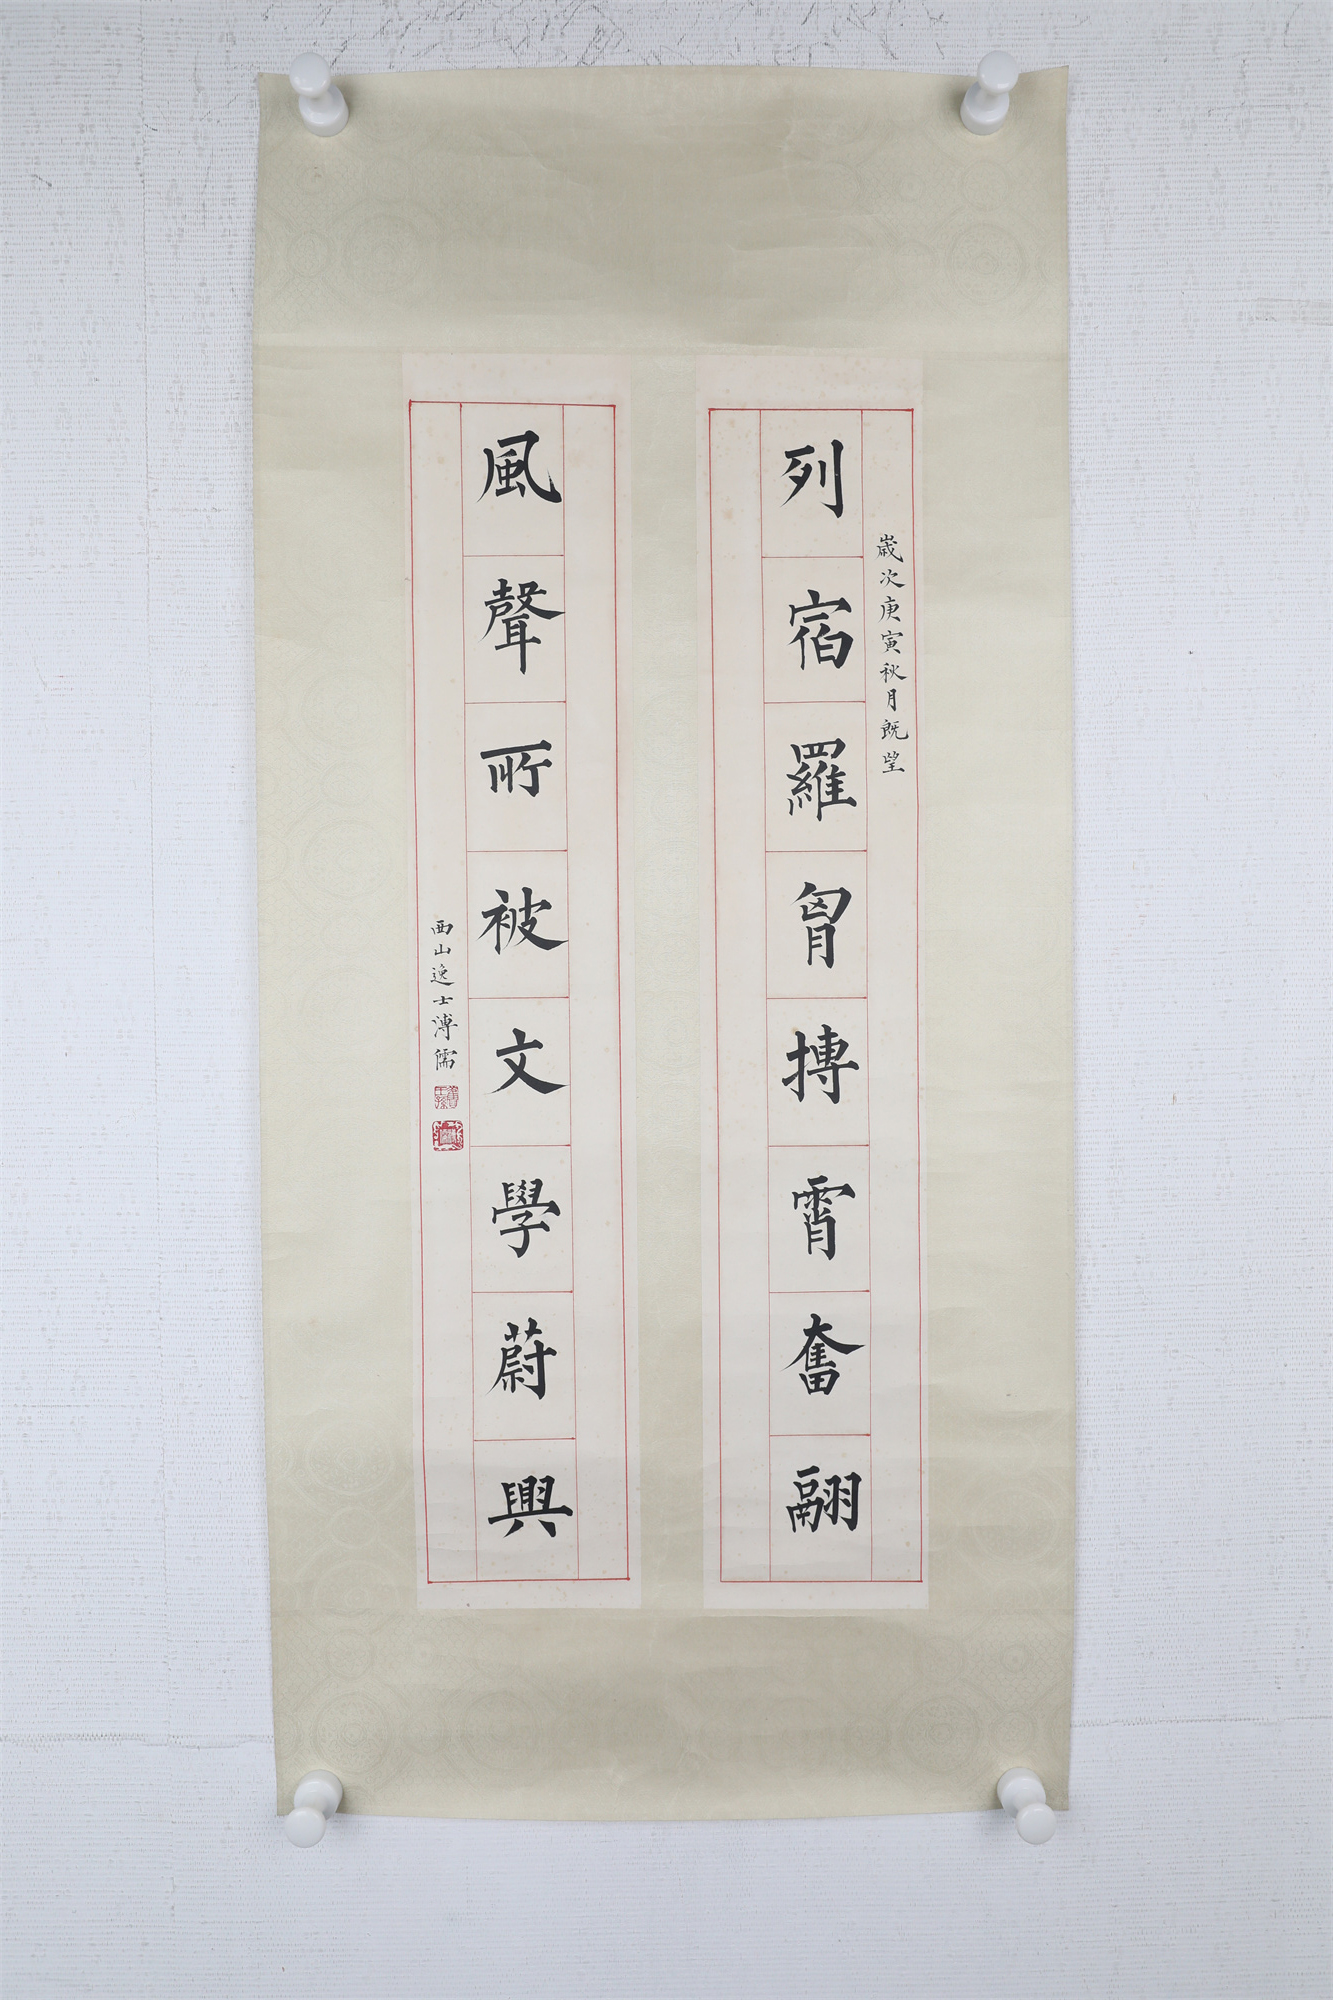 歲次庚寅秋月既望
列宿羅胷摶霄奮翮
風聲所被文學蔚興
西山逸士溥儒